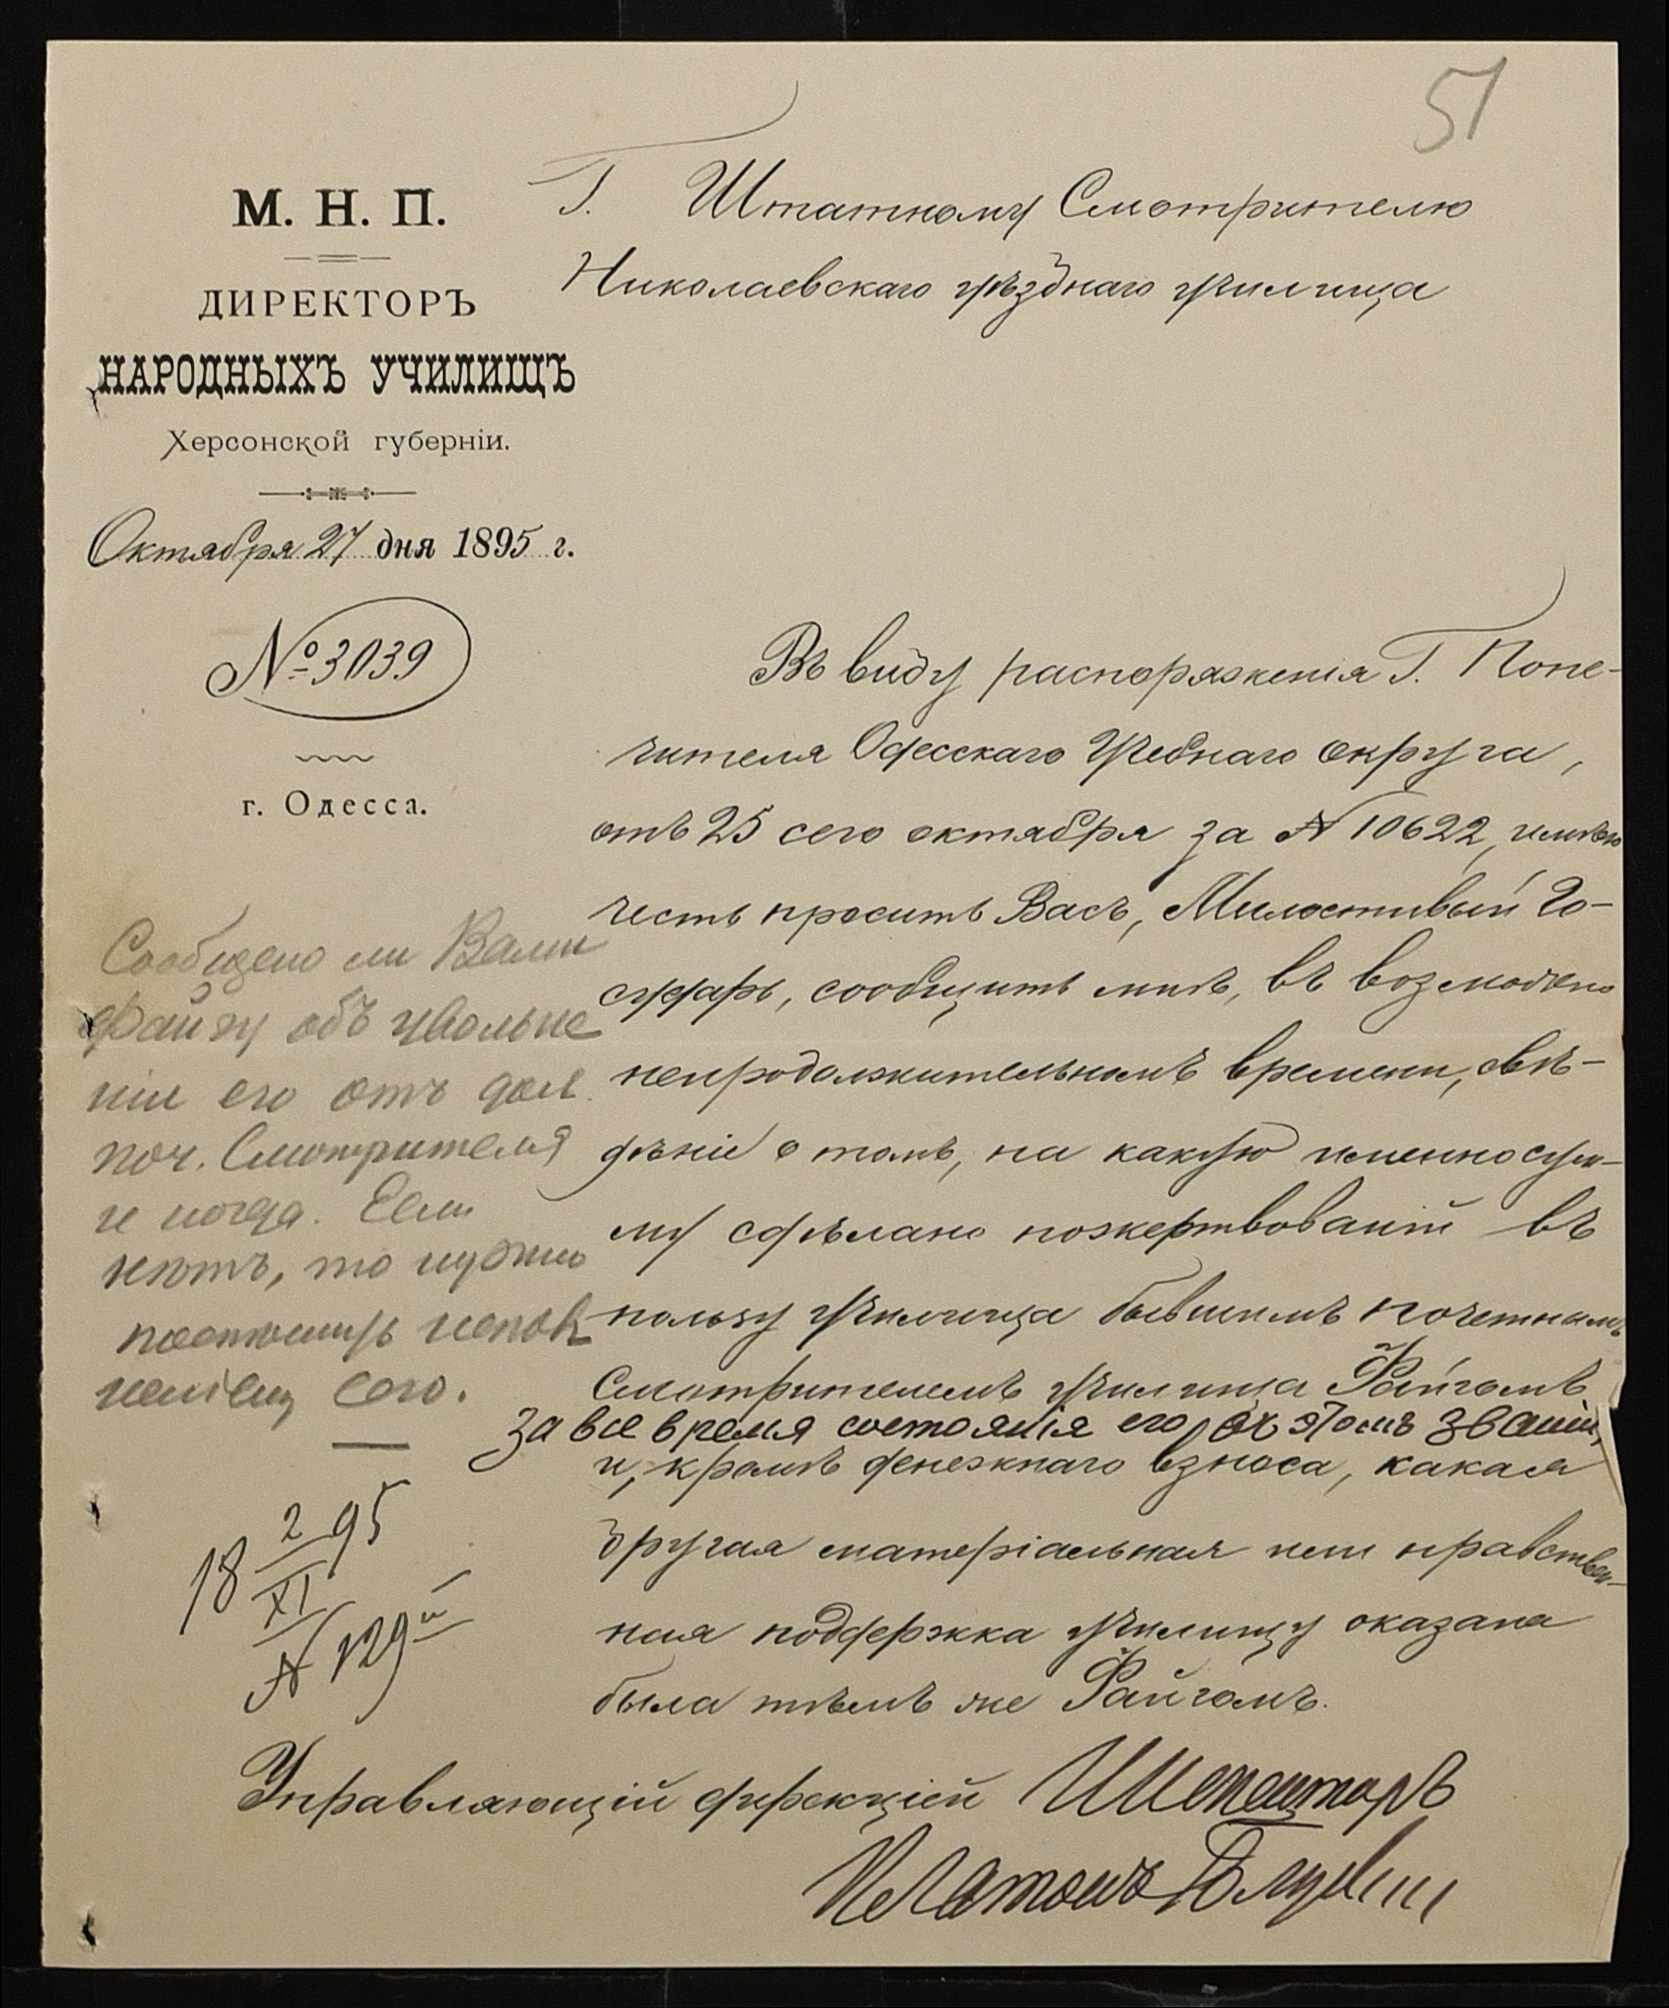 51
М. Н. П.
ДИРЕКТОРЪ
НАРОДНЫХЪ УЧИЛИЩЪ
Херсонской губерніи.
Октября 27 дня 1895 г.
№ 3039
г. Одесса.
Г. Штатному Смотрителю
Николаевскаго уѣзднаго училища
Въ виду распоряженія Г. Попе-
чителя Одесскаго Учебнаго округа,
отъ 25 сего октября за № 10622, имѣю
честь просить Васъ, Милостивый Го-
сударь, сообщить мнѣ, въ возможно
непродолжительномъ времени, свѣ-
дѣніе о томъ, на какую именно сум-
му сдѣлано пожертвованій въ
пользу училища бывшимъ почетнымъ
Смотрителемъ училища Файгомъ
за все время состоянія его въ этомъ званіи,
и, кромѣ денежнаго взноса, какая
другая матеріальная или нравствен-
ная поддержка училищу оказана
была тѣмъ же Файгомъ.
Управляющій дирекціей Инспекторъ
Платонъ
Сообщено ли Вами
Файгу объ увольне
ніи его отъ дол.
поч. Смотрителя
и когда. Если
нѣтъ, то нужно
сего.
18 2/XI 95
№ 129